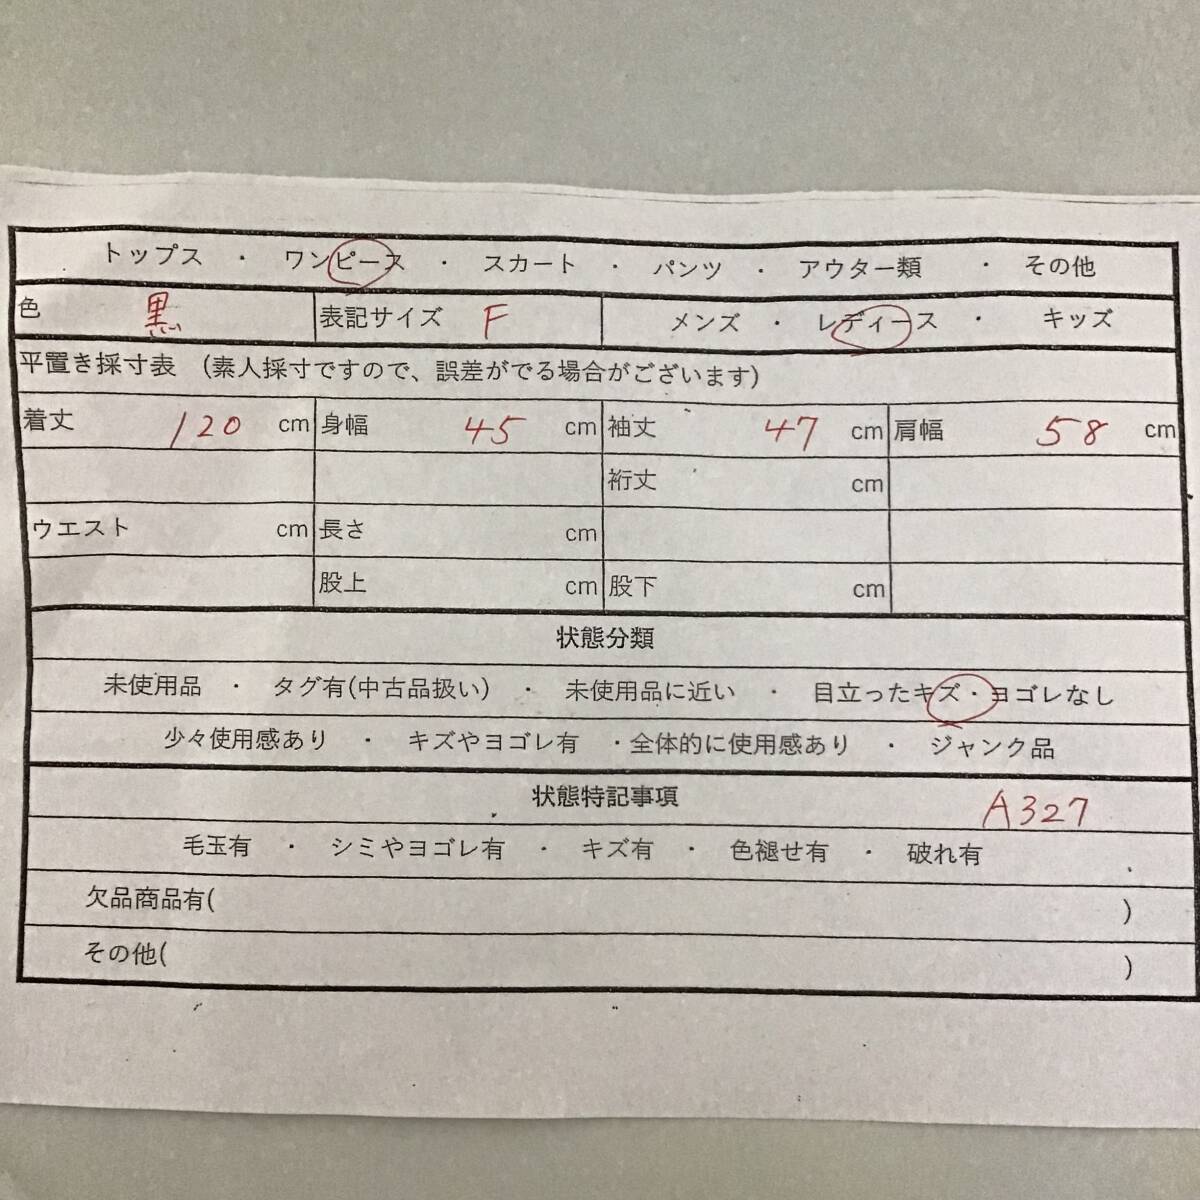 トップス ・ ワンピース ・ スカート ・ パンツ ・ アウター類 ・ その他
色 黒 表記サイズ F メンズ ・ レディース ・ キッズ
平置き採寸表 (素人採寸ですので、誤差がでる場合がございます)
着丈 120 cm 身幅 45 cm 袖丈 47 cm 肩幅 58 cm
裄丈 cm
ウエスト cm 長さ cm
股上 cm 股下 cm
状態分類
未使用品 ・ タグ有(中古品扱い) ・ 未使用品に近い ・ 目立ったキズ・ヨゴレなし
少々使用感あり ・ キズやヨゴレ有 ・全体的に使用感あり ・ ジャンク品
状態特記事項 A327
毛玉有 ・ シミやヨゴレ有 ・ キズ有 ・ 色褪せ有 ・ 破れ有
欠品商品有( )
その他( )